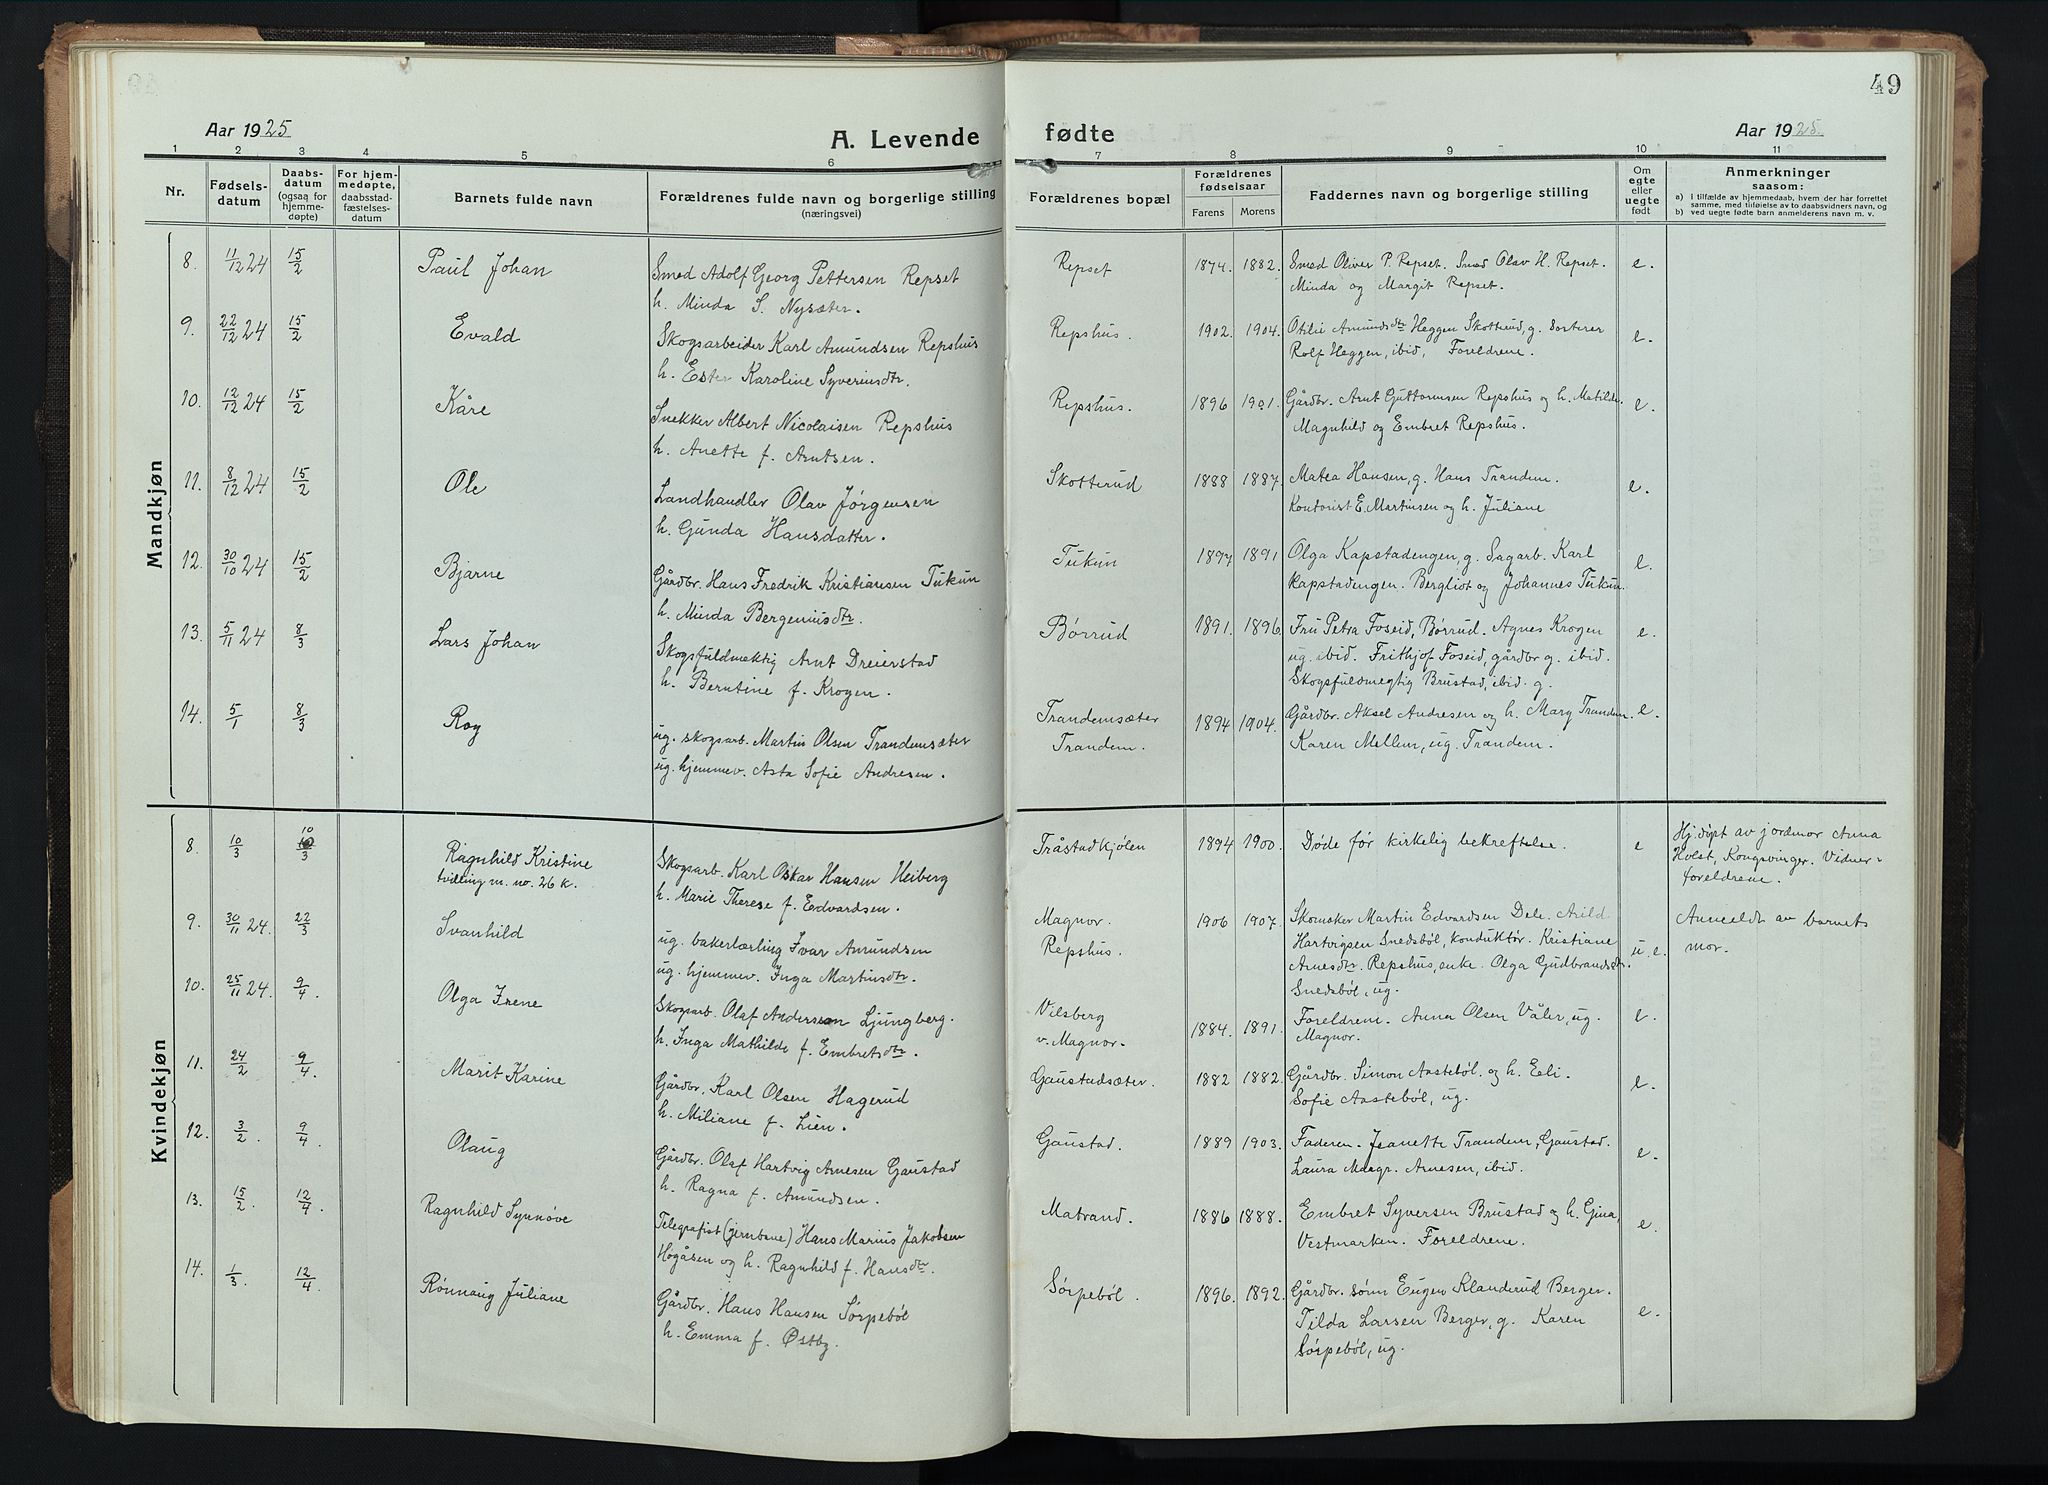 49
Aar 1925
A. Levende
fødte
Aar 1925.
1 2 3 4 5 6 7 8 9 10 11
Nr.
Fødsels-
datum
Daabs-
datum
(ogsaa for
hjemme-
døpte)
For hjem-
medøpte,
daabsstad-
fæstelses-
datum
Barnets fulde navn
Forældrenes fulde navn og borgerlige stilling
(næringsvei)
Forældrenes bopæl
Forældrenes
fødselsaar
Farens Morens
Faddernes navn og borgerlige stilling
Om
egte
eller
uegte
født
Anmerkninger
saasom:
a) I tilfælde av hjemmedaab, hvem der har forrettet
samme, med tilføielse av to daabsvidners navn, og
b) ved uegte fødte barn anmelderens navn m. v.
Mandkjøn
8. 11/12 24 15/2 Paul Johan
Smed Adolf Georg Pettersen Repset
h. Minda S. Nysæter.
Repset 1874. 1882.
Smed Oliver P. Repset. Smed Olav H. Repset.
Minda og Margit Repset.
e.
9. 22/12 24 15/2 Evald
Skogsarbeider Karl Amundsen Repshus
h. Ester Karoline Syverinsdtr.
Repshus. 1902. 1904.
Otilie Amundsdtr Heggen Skotterud, g. Sorterer
Rolf Heggen, ibid, Foreldrene.
e.
10. 12/12 24 15/2 Kåre
Snekker Albert Nicolaisen Repshus
h. Anette f. Arntsen.
Repshus. 1896 1901.
Gårdbr. Arnt Guttormsen Repshus og h. Matilde.
Magnhild og Embret Repshus.
e.
11. 8/12 24 15/2 Ole
Landhandler Olav Jørgensen
h. Gunda Hansdatter.
Skotterud 1888 1887.
Matea Hansen, g. Hans Trandem.
Kontorist E. Martinsen og h. Juliane
e.
12. 30/10 24 15/2 Bjarne
Gårdbr. Hans Fredrik Kristiansen Tukun
h. Minda Bergeniusdtr.
Tukun 1897 1891
Olga Kapstadengen, g. Sagarb. Karl
Kapstadengen. Bergliot og Johannes Tukun.
e.
13. 5/11 24 8/3 Lars Johan
Skogsfuldmektig Arnt Dreierstad
h. Berntine f. Krogen.
Børrud 1891. 1896.
Fru Petra Foseid, Børrud. Agnes Krogen
ug. ibid. Frithjof Foseid, gårdbr g. ibid.
Skogsfuldmegtig Brustad, ibid. g.
e.
14. 5/1 8/3 Roy
ug. skogsarb. Martin Olsen Trandemsæter
ug. hjemmev. Asta Sofie Andresen.
Trandemsæter
Trandem.
1894 1904.
Gårdbr. Aksel Andresen og h. Mary Trandem.
Karen Mellem, ug. Trandem.
e.
Kvindekjøn
8. 10/3 10/3 Ragnhild Kristine
tvilling m. no. 26 k.
Skogsarb. Karl Oskar Hansen Heiberg
h. Marie Therese f. Edvardsen.
Tråstadkjølen 1894 1900.
Døde før kirkelig bekreftelse.
e
Hj. døpt av jordmor Anna
Holst, Kongsvinger. Vidner-
foreldrene.
9. 30/11 24. 22/3 Svanhild
ug. bakerlærling Ivar Amundsen
ug. hjemmev. Inga Martinsdtr.
Magnor.
Repshus.
1906 1907.
Skomaker Martin Edvardsen Dele. Arild
Hartvigsen Snedsbøl, konduktør. Kristiane
Arnesdtr. Repshus, enke. Olga Gudbrandsdtr.
Snedsbøl, ug.
u. e.
Anmeldt av barnets
mor.
10. 25/11 24. 9/4. Olga Irene
Skogsarb. Olaf Anderson Ljungberg.
h. Inga Mathilde f. Embretsdtr.
Vilsberg
v. Magnor.
1884. 1891.
Foreldrene. Anna Olsen Våler, ug.
Magnor.
e.
11. 24/2 9/4. Marit Karine
Gårdbr. Karl Olsen Hagerud
h. Miliane f. Lien.
Gaustadsæter. 1882 1882.
Gårdbr. Simon Aastebøl. og h. Eeli.
Sofie Aastebøl, ug.
e.
12. 3/2. 9/4. Olaug
Gårdbr. Olaf Hartvig Arnesen Gaustad
h. Ragna f. Amundsen.
Gaustad. 1889 1903.
Faderen. Jeanette Trandem, Gaustad.
Laura Margr. Arnesen, ibid.
e.
13. 15/2. 12/4. Ragnhild Synnøve
Telegrafist (jernbane) Hans Marius Jakobsen
Hogåsen og h. Ragnhild f. Hansdtr.
Matrand. 1886 1888.
Embret Syversen Brustad og h. Gina,
Vestmarken. Foreldrene.
e.
14. 1/3. 12/4. Rønnaug Juliane
Gårdbr. Hans Hansen Sørpebøl
h. Emma f. Østby.
Sørpebøl. 1896. 1892.
Gårdbr. sønn Eugen Klanderud Berger.
Tilda Larsen Berger, g. Karen
Sørpebøl, ug.
e.